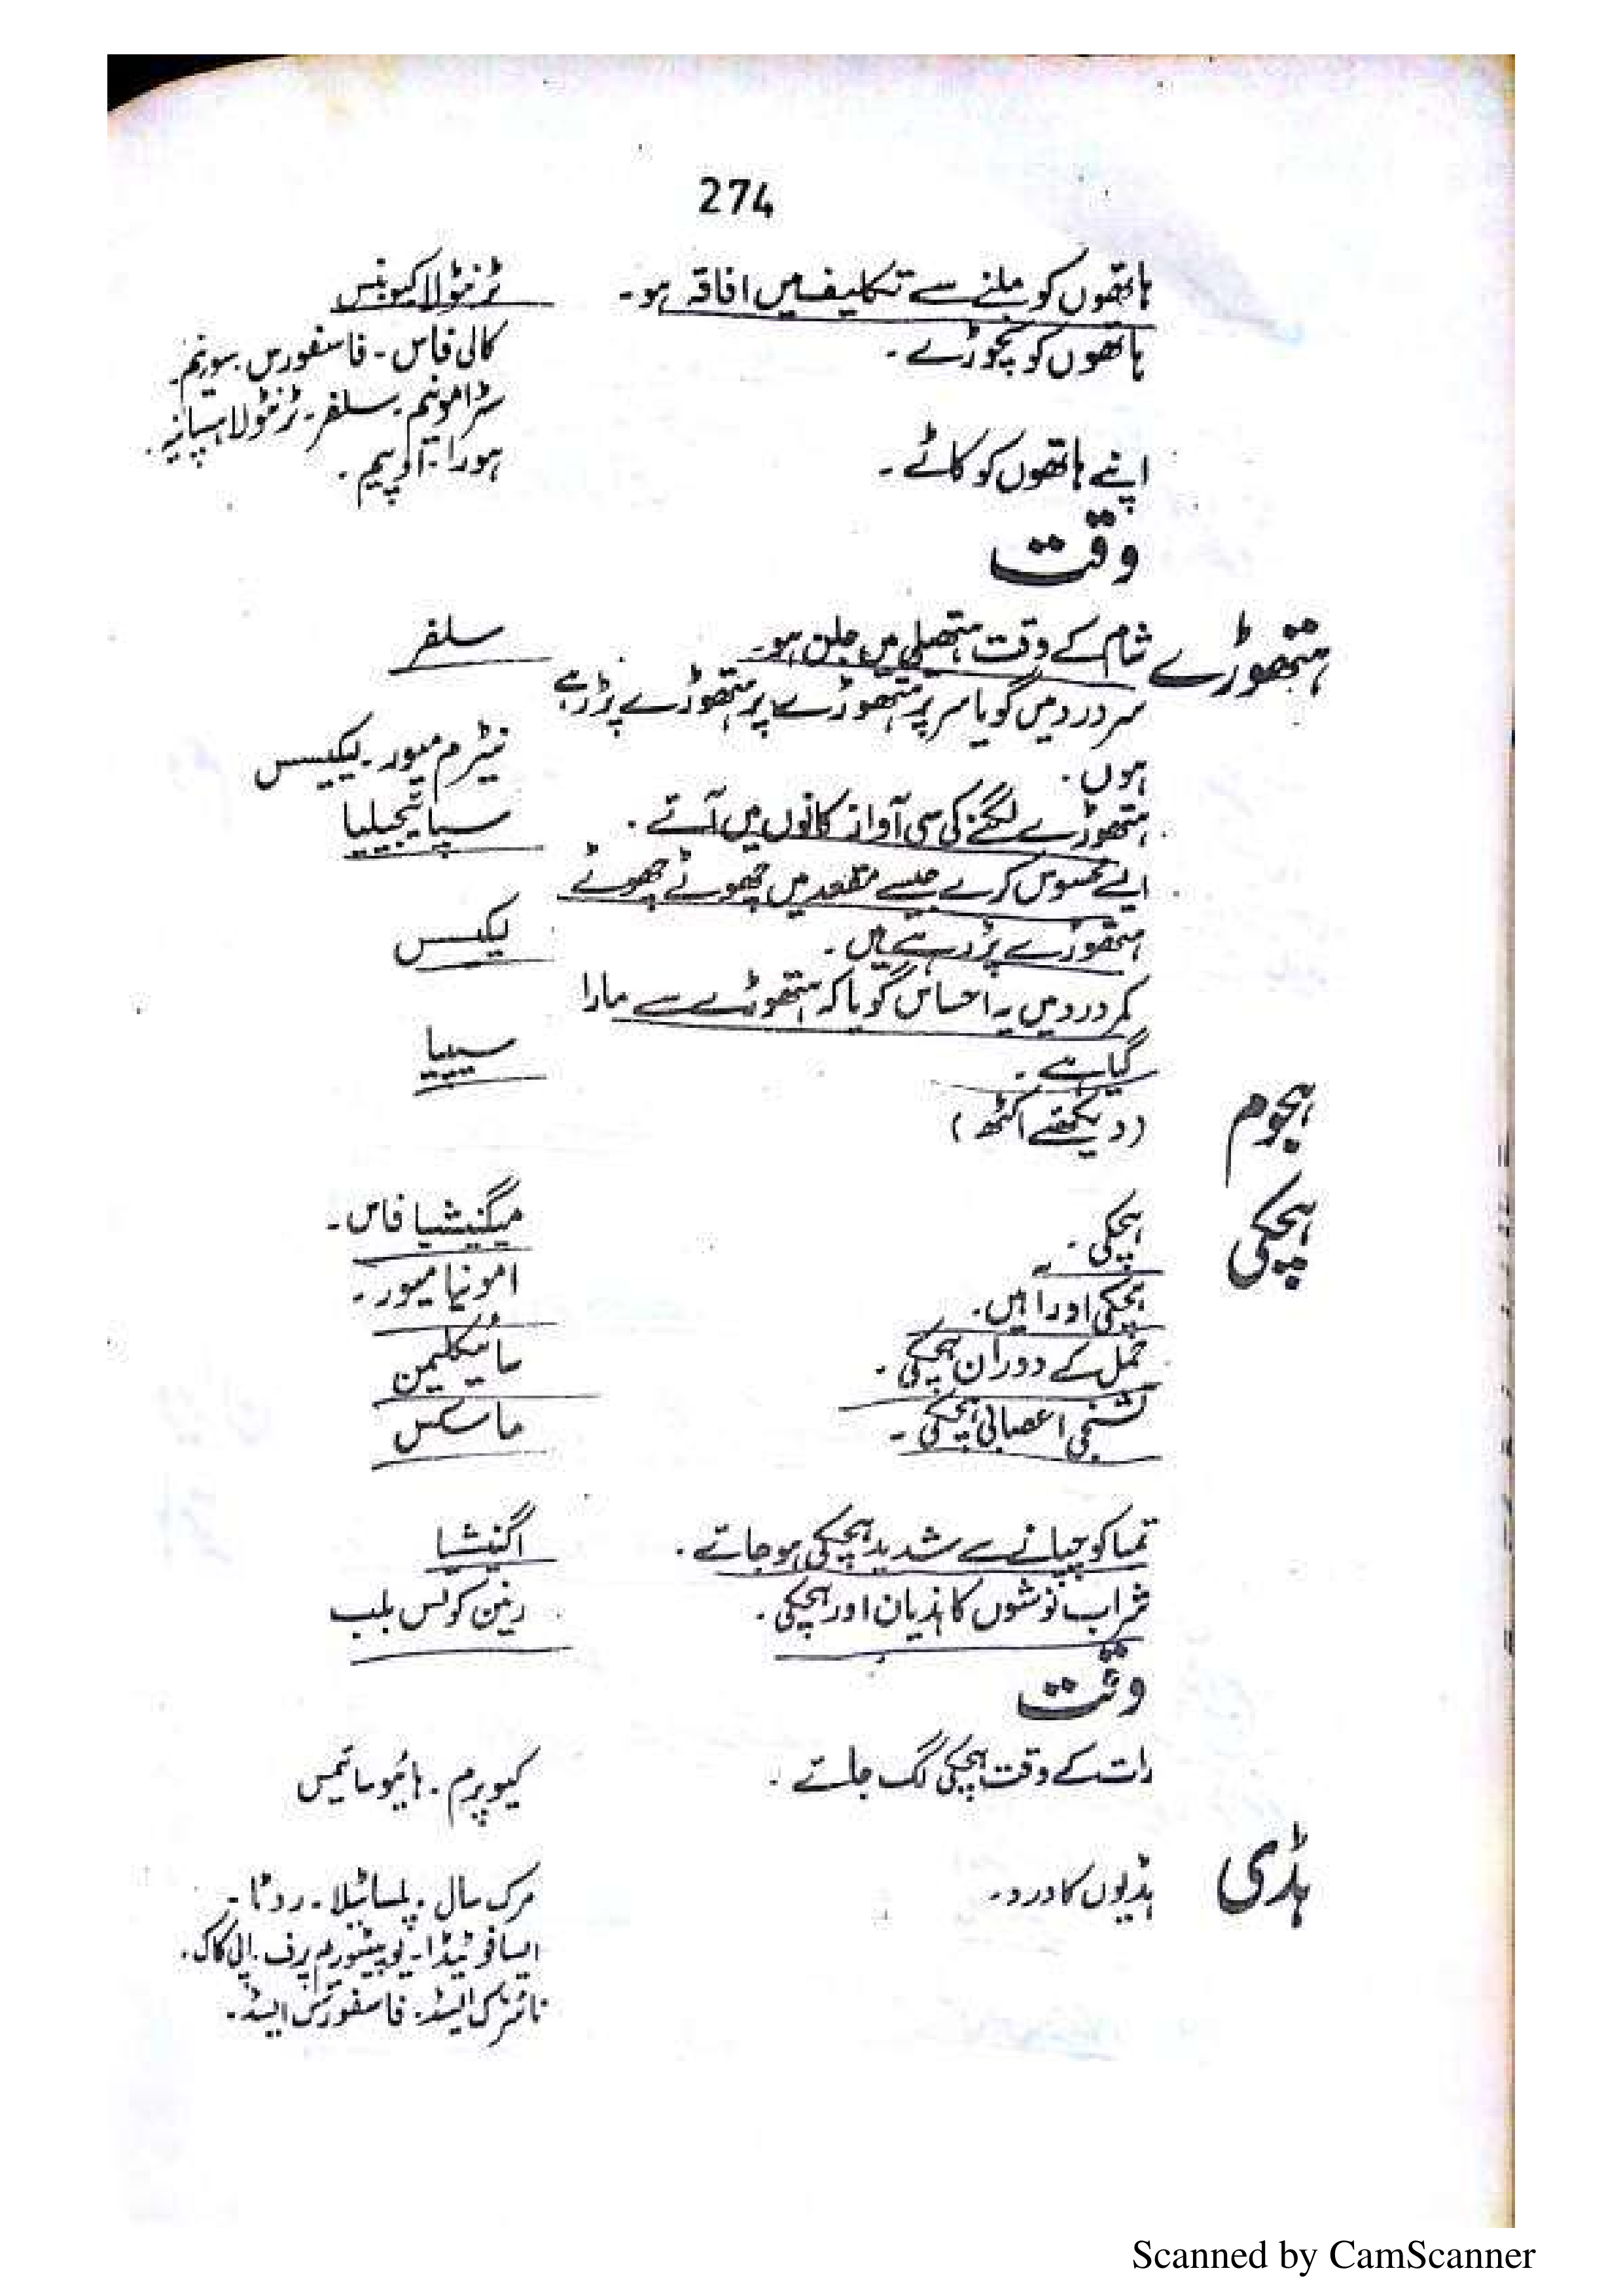 274
ہاتھوں کو ملنے سے تکلیف میں افاقہ ہو۔ ٹرنٹولا کیوبنس
ہاتھوں کو نچوڑے۔ کالی فاس۔ فاسفورس۔
سٹرامونیم۔ سلفر۔ ٹرنٹولا ہسپانیہ۔
اپنے ہاتھوں کو کاٹے۔ ہورا۔ اوپیم۔
وقت
شام کے وقت ہتھیلی میں جلن ہو۔ سلفر
ہتھوڑے
سر درد میں گویا سر پر ہتھوڑے پر ہتھوڑے پڑ رہے
ہوں۔ نیٹرم میور۔ لیکیسس
ہتھوڑے لگنے کی سی آواز کانوں میں آئے۔ سپائیجیلیا
ایسے محسوس کرے جیسے مقعد میں چھوٹے چھوٹے
ہتھوڑے پڑ رہے ہیں۔ لیکسس
کمر درد میں یہ احساس گویا کہ ہتھوڑے سے مارا
گیا ہے۔ سیپیا
ہجوم (دیکھئے اکٹھ)
ہچکی ہچکی۔ میگنیشیا فاس۔
ہچکی اور اہیں۔ امونیا میور۔
حمل کے دوران ہچکی۔ سائیکلیمن
تشنجی اعصابی ہچکی۔ ماسکس
تمباکو چبانے سے شدید ہچکی ہو جائے۔ اگنیشیا
شراب نوشوں کا ہذیان اور ہچکی۔ رینن کولس بلب
وقت
رات کے وقت ہچکی لگ جائے۔ کیوپرم۔ ہائیوسائمس
ہڈی ہڈیوں کا درد۔ مرک سال۔ پلساٹیلا۔ روٹا۔
ایسافوٹیڈا۔ یوپیٹوریم پرف۔ اپی کاک۔
نائٹرک ایسڈ۔ فاسفورک ایسڈ۔
Scanned by CamScanner